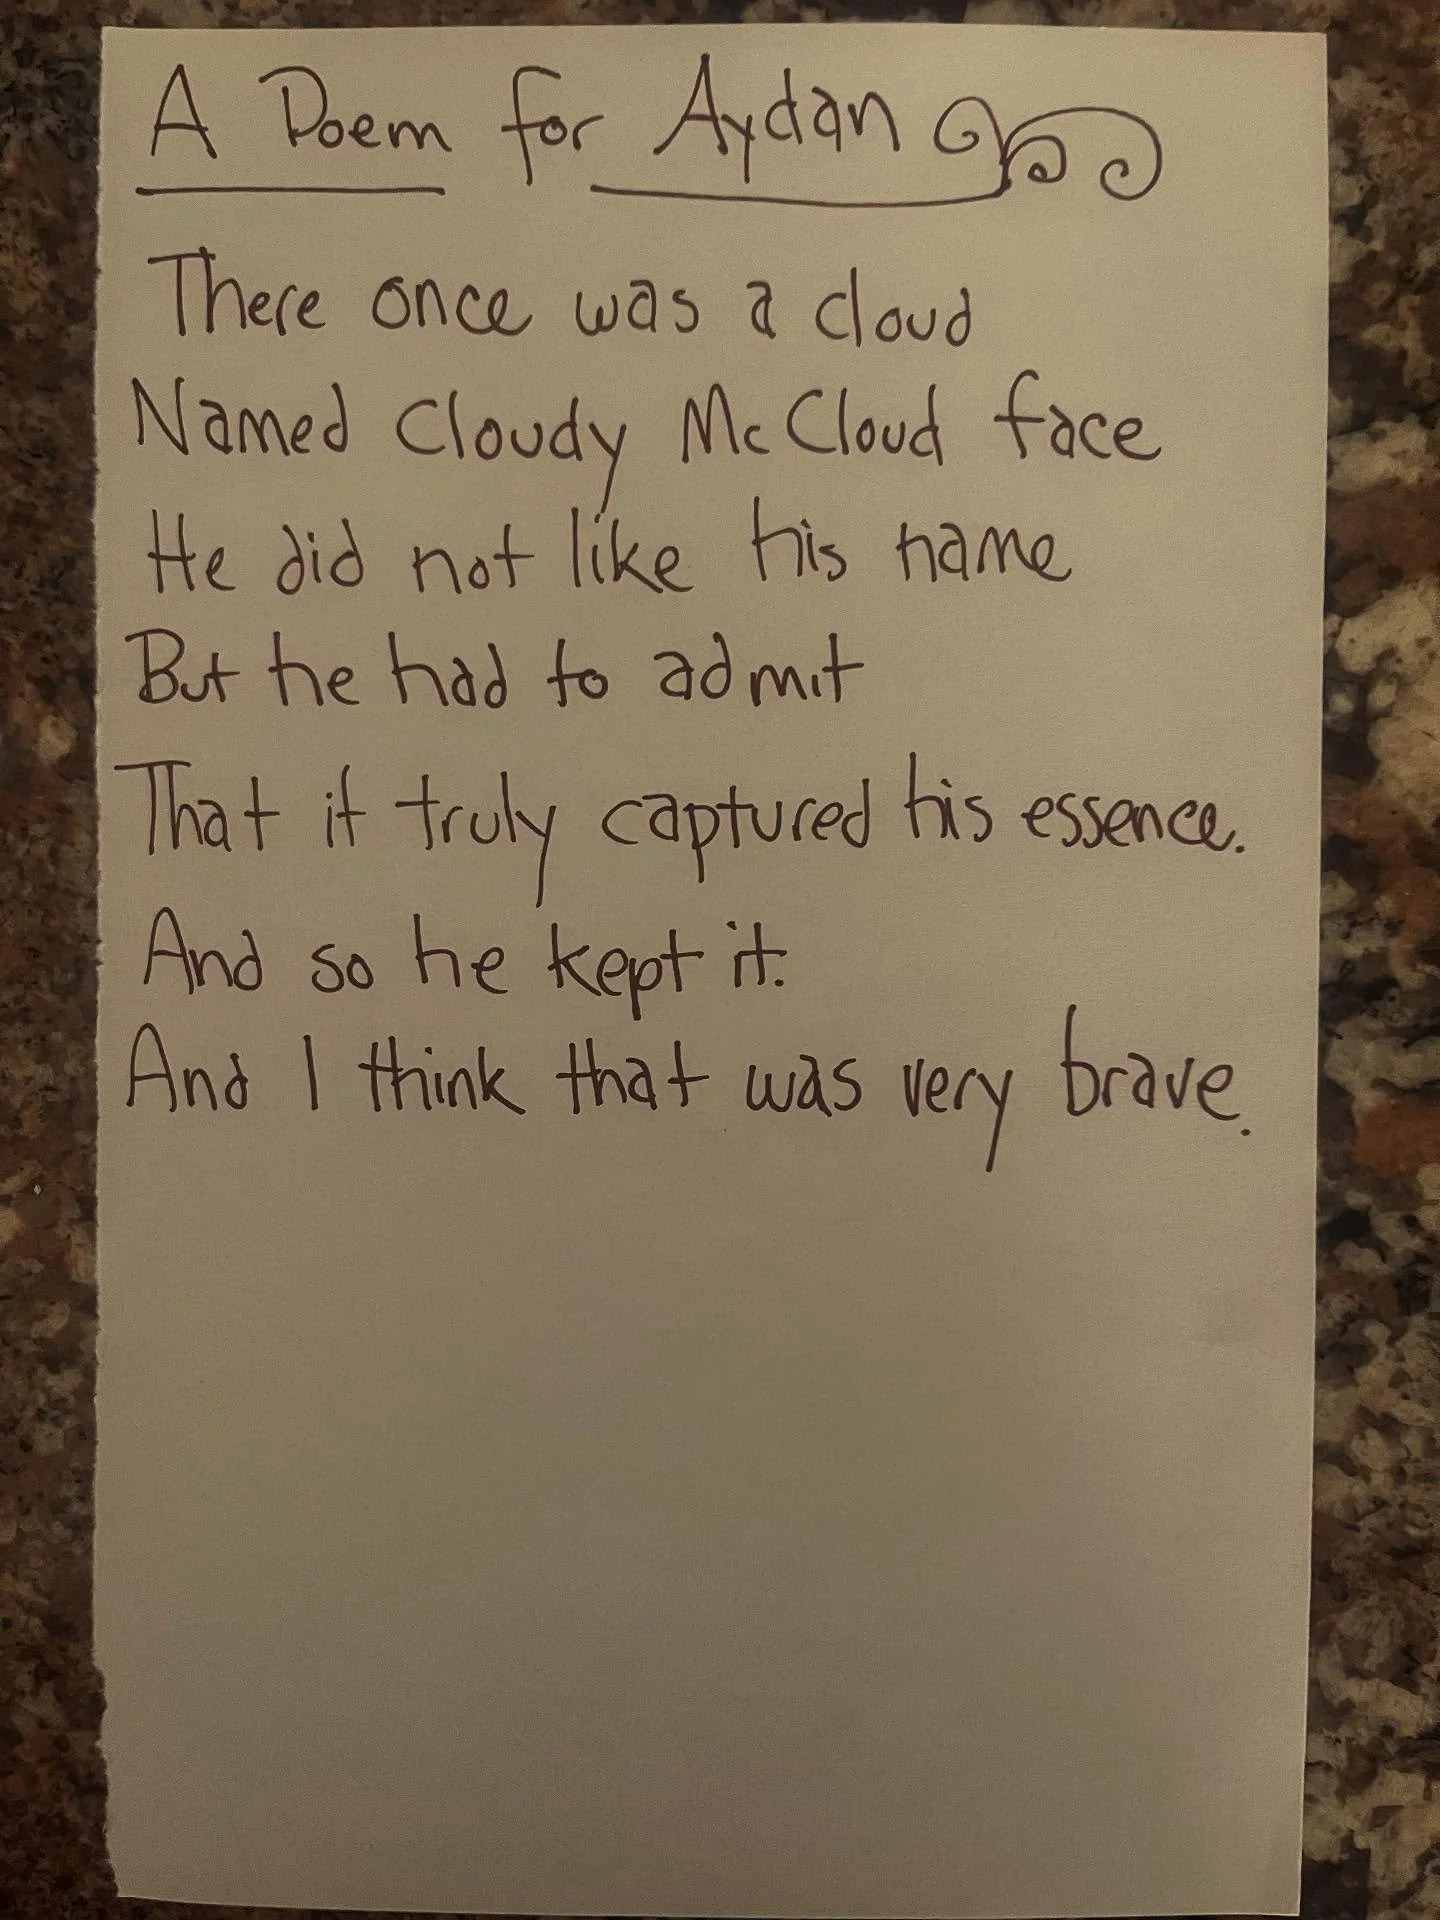 A Poem for Aydan
There once was a cloud
Named Cloudy McCloud face
He did not like his name
But he had to admit
That it truly captured his essence.
And so he kept it.
And I think that was very brave.